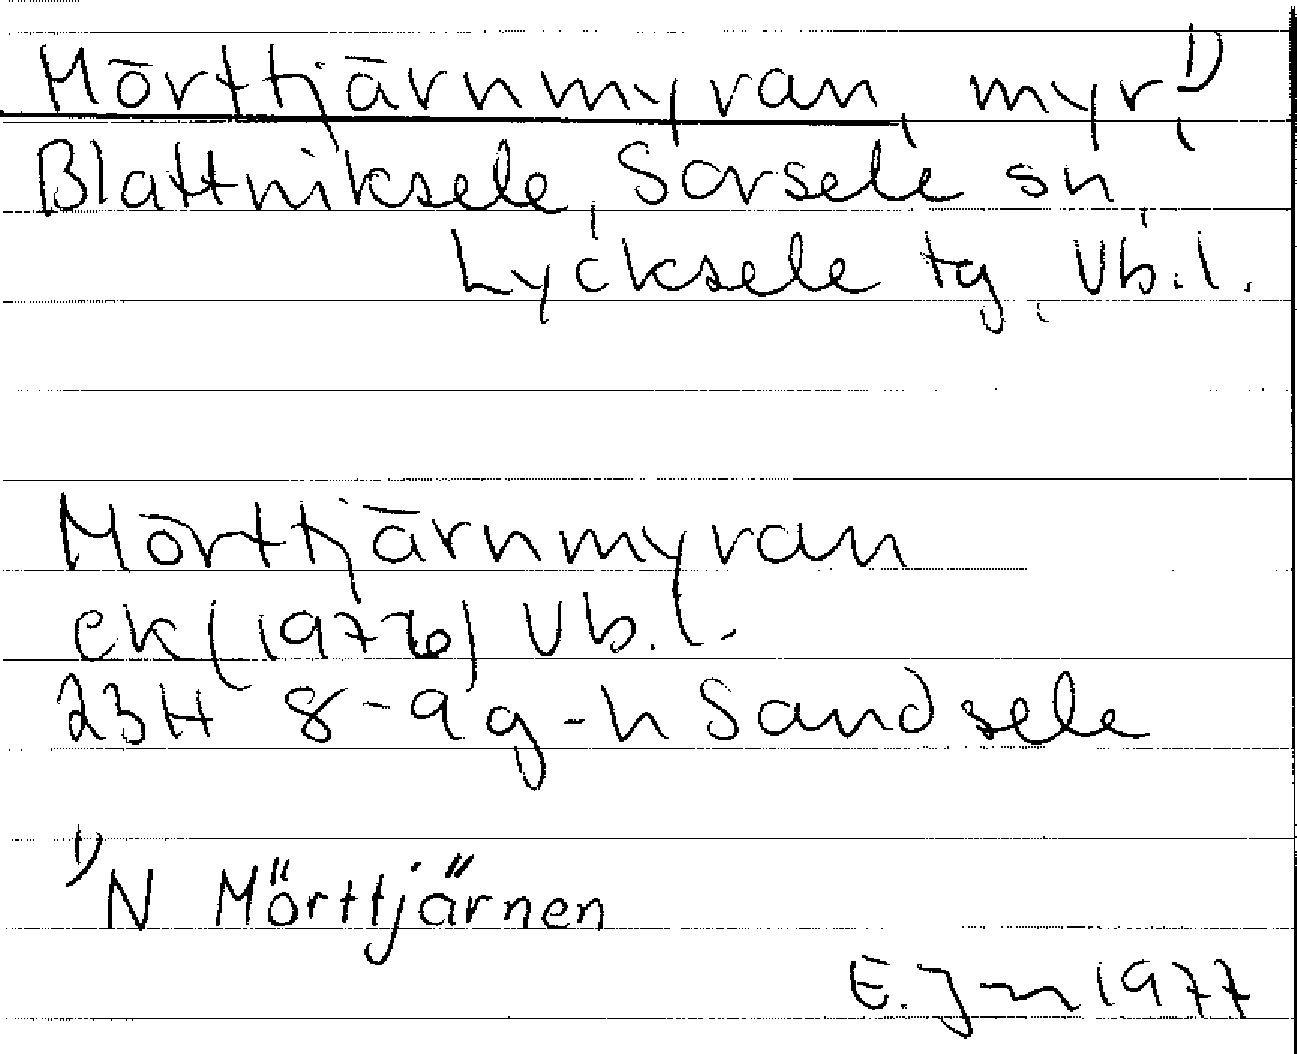 Mörttjärnmyran, myr,¹⁾
Blattniksele, Sorsele sn,
Lycksele tg, Vb.l.
Mörttjärnmyran
ek (1976) Vb.l.
23H 8-9g-h Sandsele
¹⁾ N Mörttjärnen
E. Jn 1977